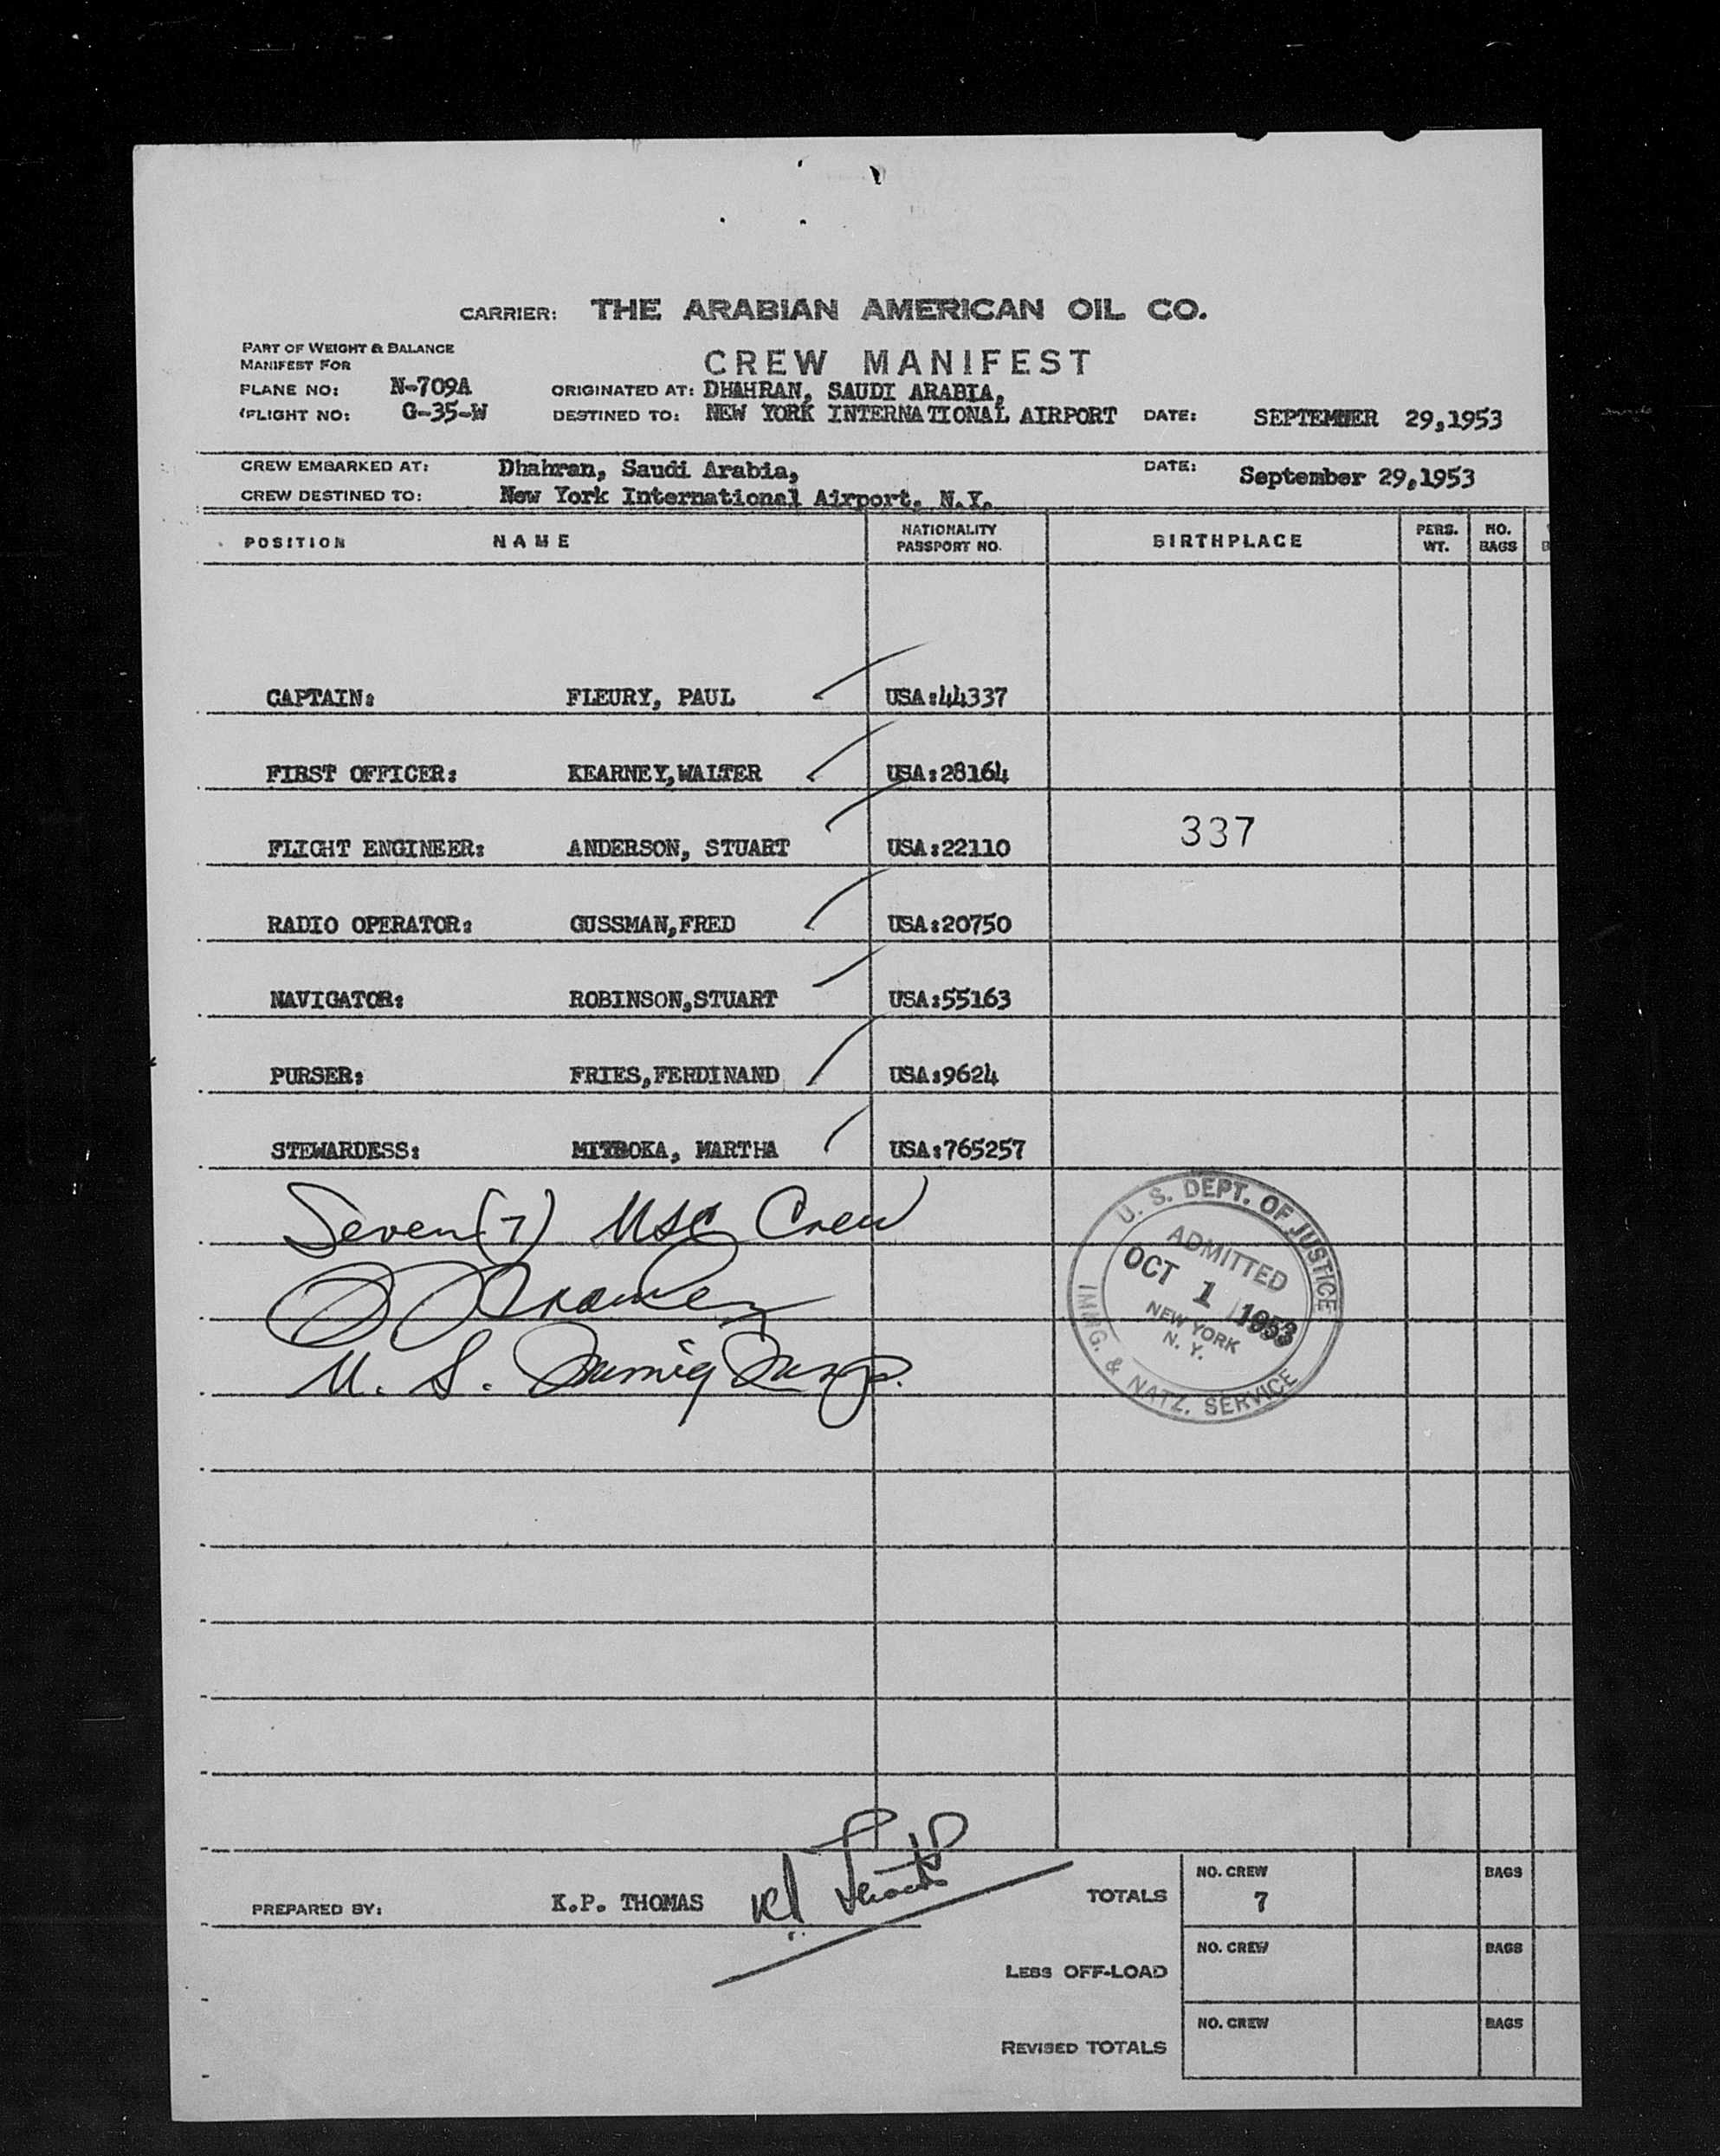 CARRIER: THE ARABIAN AMERICAN OIL CO.
PART OF WEIGHT & BALANCE
MANIFEST FOR
CREW MANIFEST
PLANE NO: N-709A ORIGINATED AT: DHAHRAN, SAUDI ARABIA,
FLIGHT NO: G-35-W DESTINED TO: NEW YORK INTERNATIONAL AIRPORT DATE: SEPTEMBER 29,1953
CREW EMBARKED AT: Dhahran, Saudi Arabia, DATE: September 29,1953
CREW DESTINED TO: New York International Airport, N.Y.
POSITION NAME NATIONALITY PASSPORT NO. BIRTHPLACE PERS. WT. NO. BAGS
CAPTAIN: FLEURY, PAUL USA:44337
FIRST OFFICER: KEARNEY,WALTER USA:28164
337
FLIGHT ENGINEER: ANDERSON, STUART USA:22110
RADIO OPERATOR: GUSSMAN,FRED USA:20750
NAVIGATOR: ROBINSON,STUART USA:55163
PURSER: FRIES,FERDINAND USA:9624
STEWARDESS: MITROKA, MARTHA USA:765257
Seven (7) USC Crew
U. S. Immig Insp.
U. S. DEPT. OF JUSTICE
ADMITTED
OCT 1 1953
NEW YORK
N. Y.
IMMG. & NATZ. SERVICE
PREPARED BY: K.P. THOMAS
TOTALS NO. CREW 7 BAGS
LESS OFF-LOAD NO. CREW BAGS
REVISED TOTALS NO. CREW BAGS